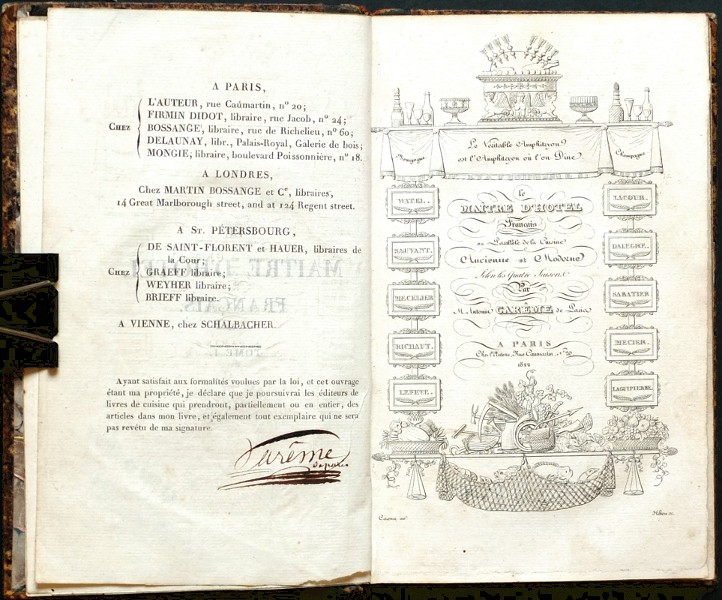 A PARIS,
L'AUTEUR, rue Caumartin, n° 20;
FIRMIN DIDOT, libraire, rue Jacob, n° 24;
CHEZ BOSSANGE, libraire, rue de Richelieu, n° 60;
DELAUNAY, libr., Palais-Royal, Galerie de bois;
MONGIE, libraire, boulevard Poissonnière, n° 18.
A LONDRES,
Chez MARTIN BOSSANGE et Ce, libraires,
14 Great Marlborough street, and at 124 Regent street.
A St. PÉTERSBOURG,
DE SAINT-FLORENT et HAUER, libraires de
la Cour;
CHEZ GRAEFF libraire;
WEYHER libraire;
BRIEFF libraire.
A VIENNE, chez SCHALBACHER.
Ayant satisfait aux formalités voulues par la loi, et cet ouvrage
étant ma propriété, je déclare que je poursuivrai les éditeurs de
livres de cuisine qui prendront, partiellement ou en entier, des
articles dans mon livre, et également tout exemplaire qui ne sera
pas revêtu de ma signature.
Carême
de paris
Le Véritable Amphitryon
est l'Amphitryon où l'on Dine
Bourgogne
Champagne
le
MAÎTRE D'HOTEL
Français
ou Parallèle de la Cuisine
Ancienne et Moderne
Selon les Quatre Saisons
Par
M. Antonin CARÊME de Paris
A PARIS
Chez l'Auteur, Rue Caumartin, n° 20
1822
VATEL.
SAUVANT.
MECELIER
RICHAUT.
LEFEVE.
LACOUR.
DALEGRE.
SABATIER
MECIER.
LAGUIPIERRE.
Careme inv.
Hibon sc.